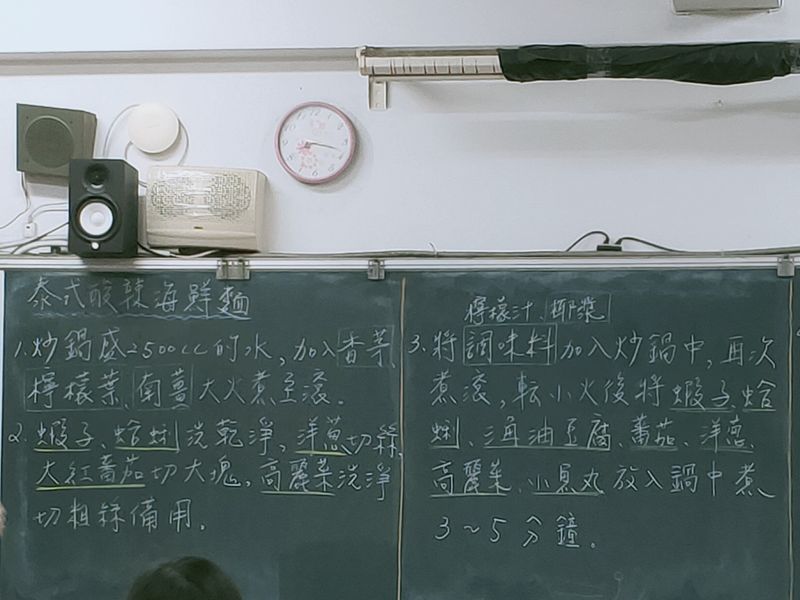 泰式酸辣海鮮麵
1.炒鍋盛2500cc的水,加入香菜
檸檬葉、南薑大火煮至滾。
2.蝦子、蛤蜊洗乾淨,洋蔥切絲,
大紅蕃茄切大塊,高麗菜洗淨
切粗絲備用。
檸檬汁、椰漿
3.將調味料加入炒鍋中,再次
煮滾,転小火後將蝦子、蛤
蜊、油豆腐、蕃茄、洋蔥、
高麗菜、小魚丸放入鍋中煮
3~5分鐘。